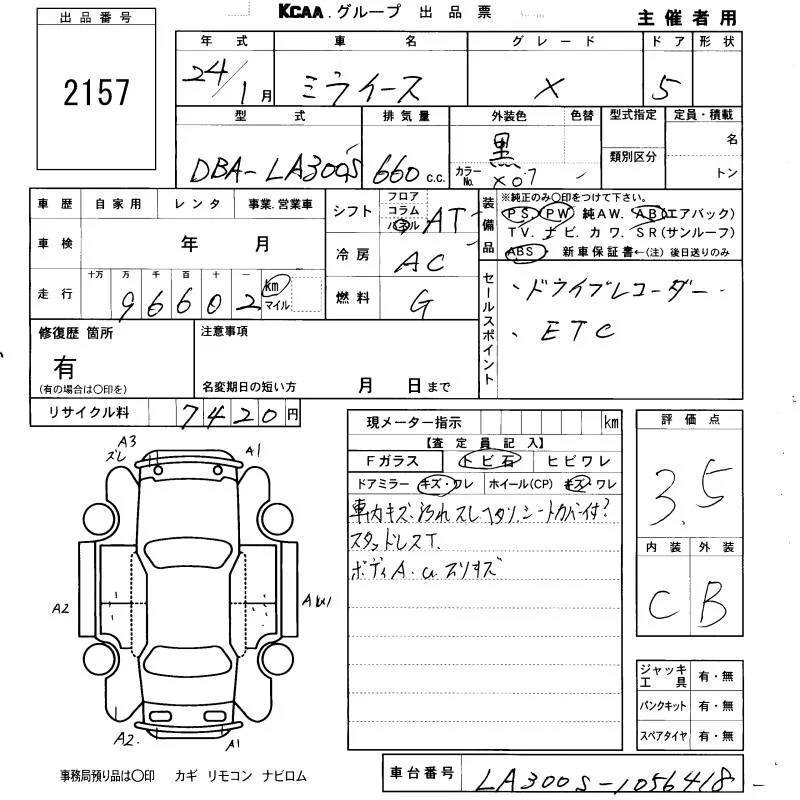 KCAA.グループ 出品票
主催者用
出品番号
2157
年式 車名 グレード ドア 形状
24/1月 ミライース X 5
型式 排気量 外装色 色替 型式指定 定員・積載
DBA-LA300S 660 c.c. 黒 名
カラーNo. X07 類別区分 トン
車歴 自家用 レンタ 事業.営業車
車検 年 月
走行 十万 万 千 百 十 一
96602 km マイル
シフト フロア コラム パネル AT
冷房 AC
燃料 G
装備品 ※純正のみ○印をつけて下さい。
PS PW 純AW. AB(エアバック)
TV. ナビ. カワ. SR(サンルーフ)
ABS 新車保証書←(注) 後日送りのみ
セールスポイント
・ドライブレコーダー
・ETC
修復歴 箇所
有
(有の場合は○印を)
注意事項
名変期日の短い方 月 日まで
リサイクル料 7420円
現メーター指示 km
【査定員記入】
Fガラス トビ石 ヒビワレ
ドアミラー キズ・ワレ ホイール(CP) キズ・ワレ
車内キズ.汚れスレヘタリ.シートカバー付?
スタッドレスT.
ボディA.U.スリキズ
評価点
3.5
内装 外装
C B
A3
ズレ
A1
A2
A2.
A1
ジャッキ工具 有・無
パンクキット 有・無
スペアタイヤ 有・無
事務局預り品は○印 カギ リモコン ナビロム
車台番号 LA300S-1056418